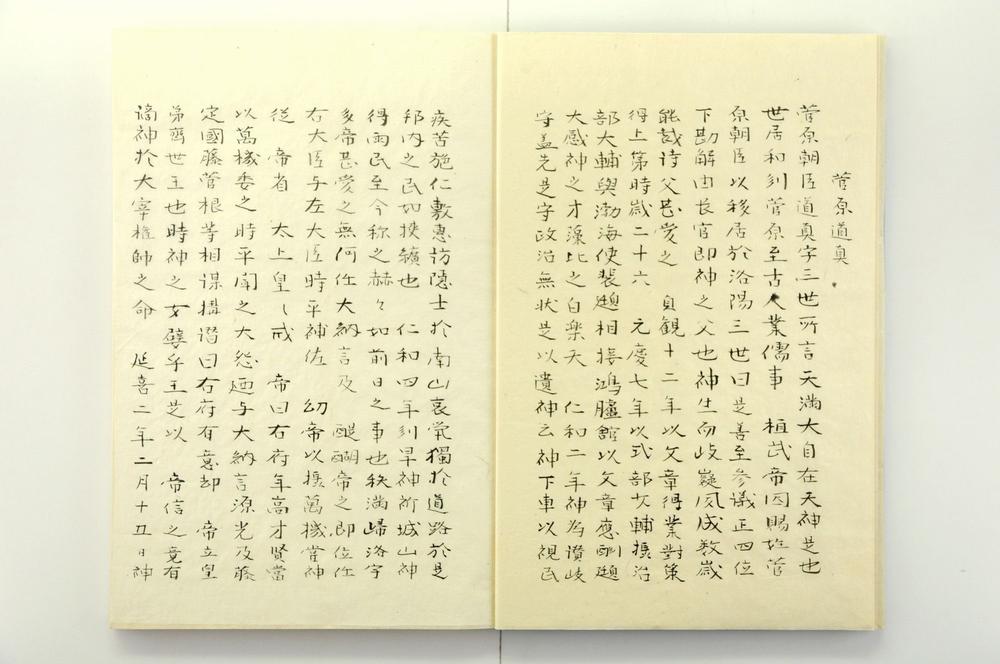 菅原道真
菅原朝臣道真字三世所言天満大自在天神是也
世居和刕菅原至古人業儒事　桓武帝因賜姓菅
原朝臣以移居於洛陽三世曰是善至参議正四位
下勘解由長官即神之父也神生而岐嶷夙成数歳
能哉詩父甚愛之　貞観十二年以文章得業對策
得上第時歳二十六　元慶七年以式部少輔攝治
部大輔與渤海使裴廸相接鴻臚館以文章應酬廸
大感神之才藻比之白楽天　仁和二年神為讃岐
守盖先是守政治無状是以遺神云神下車以視民
疾苦施仁敷惠訪隠士於南山哀煢獨於道路於是
邦内之民如挟纊也　仁和四年刕旱神祈城山神
得雨民至今称之赫々如前日之事也秩満歸洛宇
多帝甚愛之無何任大納言及　醍醐帝之即位任
右大臣与左大臣時平補佐　幼帝以攝萬機當神
從　帝省　太上皇〻戒　帝曰右府年高才賢當
以萬機委之時平聞之大怨廼与大納言源光及藤
定國藤菅根等相謀搆譖曰右府有意却　帝立皇
弟齊世王也時神之女嬖乎王是以　帝信之竟有
謫神於大宰権帥之命　延喜二年二月十五日神